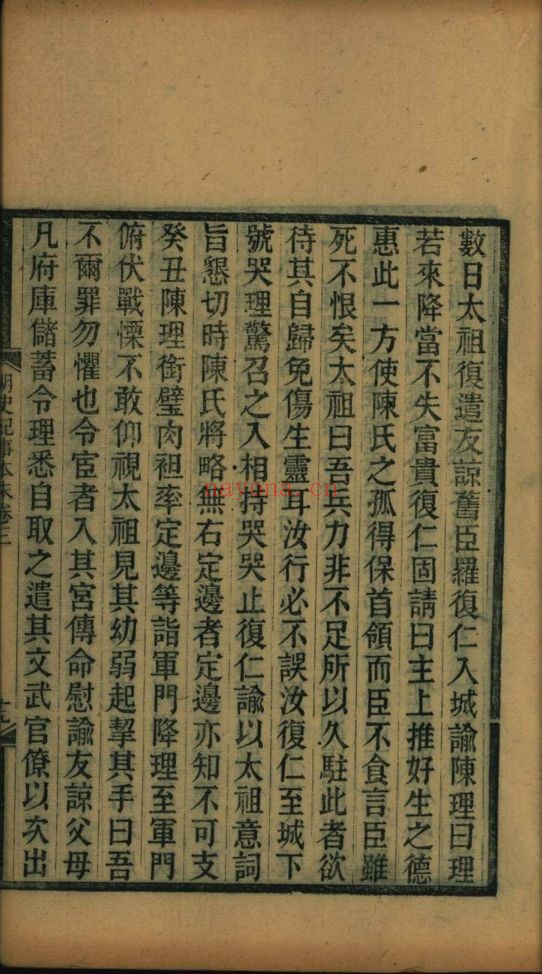 數日太祖復遣友諒舊臣羅復仁入城諭陳理曰理
若來降當不失富貴復仁固請曰主上推好生之德
惠此一方使陳氏之孤得保首領而臣不食言臣雖
死不恨矣太祖曰吾兵力非不足所以久駐此者欲
待其自歸免傷生靈耳汝行必不誤汝復仁至城下
號哭理驚召之入相持哭哭止復仁諭以太祖意詞
旨懇切時陳氏將略無右定邊者定邊亦知不可支
癸丑陳理銜璧肉袒率定邊等詣軍門降理至軍門
俯伏戰慄不敢仰視太祖見其幼弱起挈其手曰吾
不爾罪勿懼也令宦者入其宮傳命慰諭友諒父母
凡府庫儲蓄令理悉自取之遣其文武官僚以次出
明史紀事本末卷三